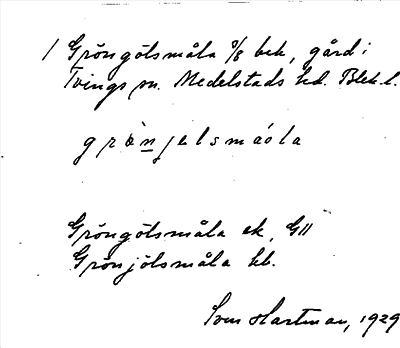 1 Gröngölsmåla 3/8 bek, gård i
Tvings sn. Medelstads hd. Blek. l.
grön̲jelsmåola
Gröngölsmåla ek, GII
Grönjölsmåla kb.
Sven Hartman, 1929